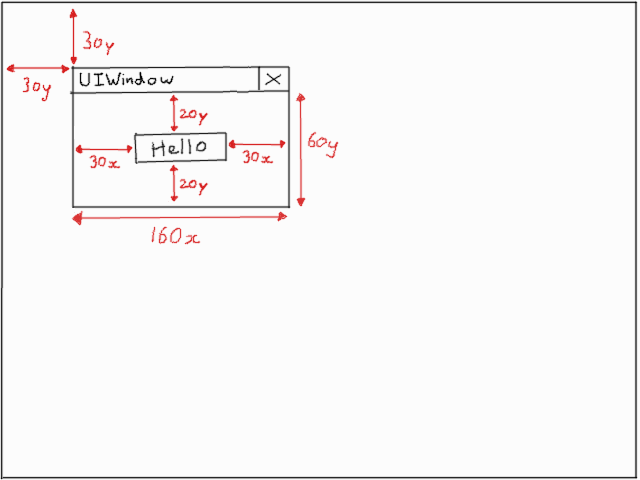 30y
30y
UIWindow X
20y
60y
Hello
30x 30x
20y
160x